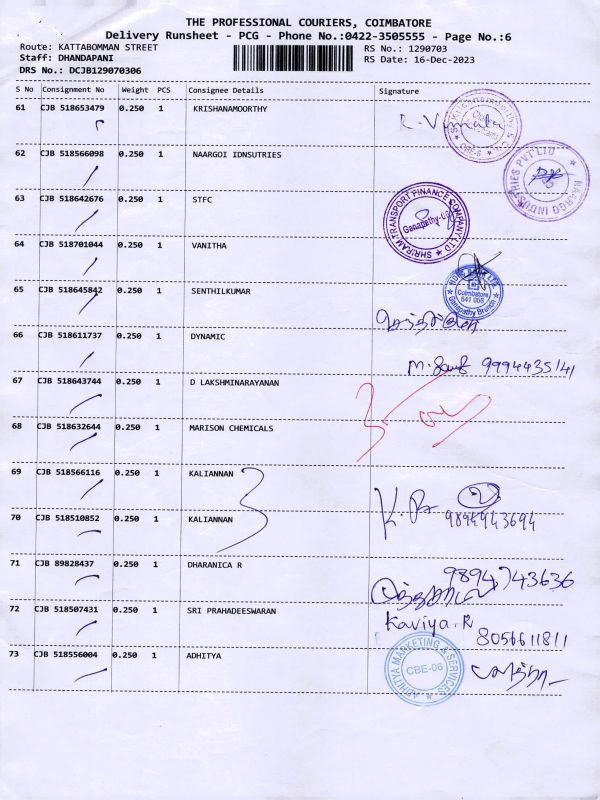 THE PROFESSIONAL COURIERS, COIMBATORE
Delivery Runsheet - PCG - Phone No.:0422-3505555 - Page No.:6
Route: KATTABOMMAN STREET RS No.: 1290703
Staff: DHANDAPANI RS Date: 16-Dec-2023
DRS No.: DCJB129070306
S No Consignment No Weight PCS Consignee Details Signature
61 CJB 518653479 0.250 1 KRISHANAMOORTHY
62 CJB 518566098 0.250 1 NAARGOI IDNSUTRIES
NAARGO INDUSTRIES PVT LTD
63 CJB 518642676 0.250 1 STFC
SHRIRAM TRANSPORT FINANCE COMPANY LTD
64 CJB 518701044 0.250 1 VANITHA
65 CJB 518645842 0.250 1 SENTHILKUMAR
Coimbatore
641 006
Ganapathy Branch
66 CJB 518611737 0.250 1 DYNAMIC
9994435141
67 CJB 518643744 0.250 1 D LAKSHMINARAYANAN
68 CJB 518632644 0.250 1 MARISON CHEMICALS
69 CJB 518566116 0.250 1 KALIANNAN
70 CJB 518510852 0.250 1 KALIANNAN
9894943694
71 CJB 89828437 0.250 1 DHARANICA R
9894743636
72 CJB 518507431 0.250 1 SRI PRAHADEESWARAN
Kaviya.R
8056611811
73 CJB 518556004 0.250 1 ADHITYA
ADHITYA MARKETING & SERVICES
CBE-06